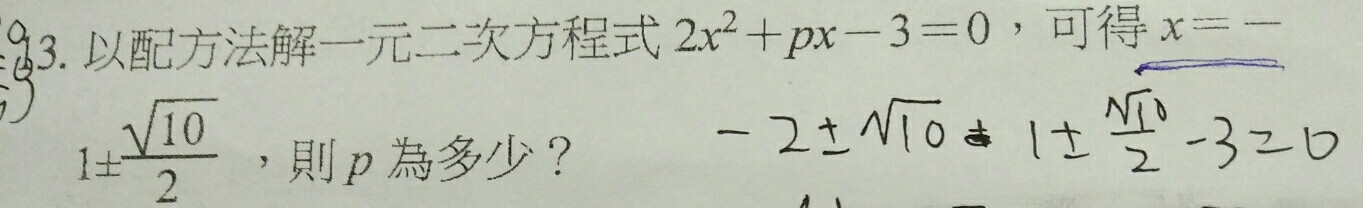 13. 以配方法解一元二次方程式 2x²+px−3=0，可得 x=−
1±√10/2，則 p 為多少？
−2±√10 ± 1±√10/2 −3=0